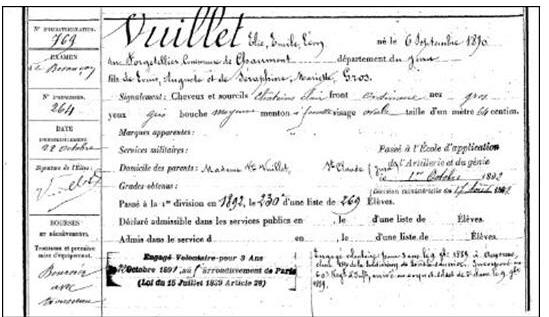 N° D'IMMATRICULATION.
769
EXAMEN
de Besançon
N° D'ADMISSION.
264
DATE
22 octobre
Signature de l'Élève:
Vuillet
BOURSES
ET
Trousseau et première
mise d'équipement.
Boursier
avec
trousseau
Vuillet Elie, Emile, Léon né le 6 Septembre 1870
aux Commune de Chaumont département du Jura
fils de Louis, Auguste et de Séraphine, Mariette, Gros.
Signalement: Cheveux et sourcils Châtains clair front ordinaire nez gros
yeux gris bouche moyenne menton à fossette visage ovale taille d'un mètre 64 centim.
Marques apparentes:
Services militaires:
Domicile des parents: Madame Ve Vuillet, St Claude (Jura)
Grades obtenus:
Passé à l'École d'application
de l'Artillerie et du génie
le 1er Octobre 1892
(Décision ministérielle du 1892
Passé à la 1re division en 1892, le 230e d'une liste de 269 Élèves.
Déclaré admissible dans les services publics en , le d'une liste de Élèves.
Admis dans le service d , le d'une liste de Élèves.
Engagé Volontaire pour 3 Ans
Octobre 1891 au arrondissement de Paris
(Loi du 15 Juillet 1889 Article 28)
Engagé volontaire pour 3 ans le 9 9bre 1889 à
1889.